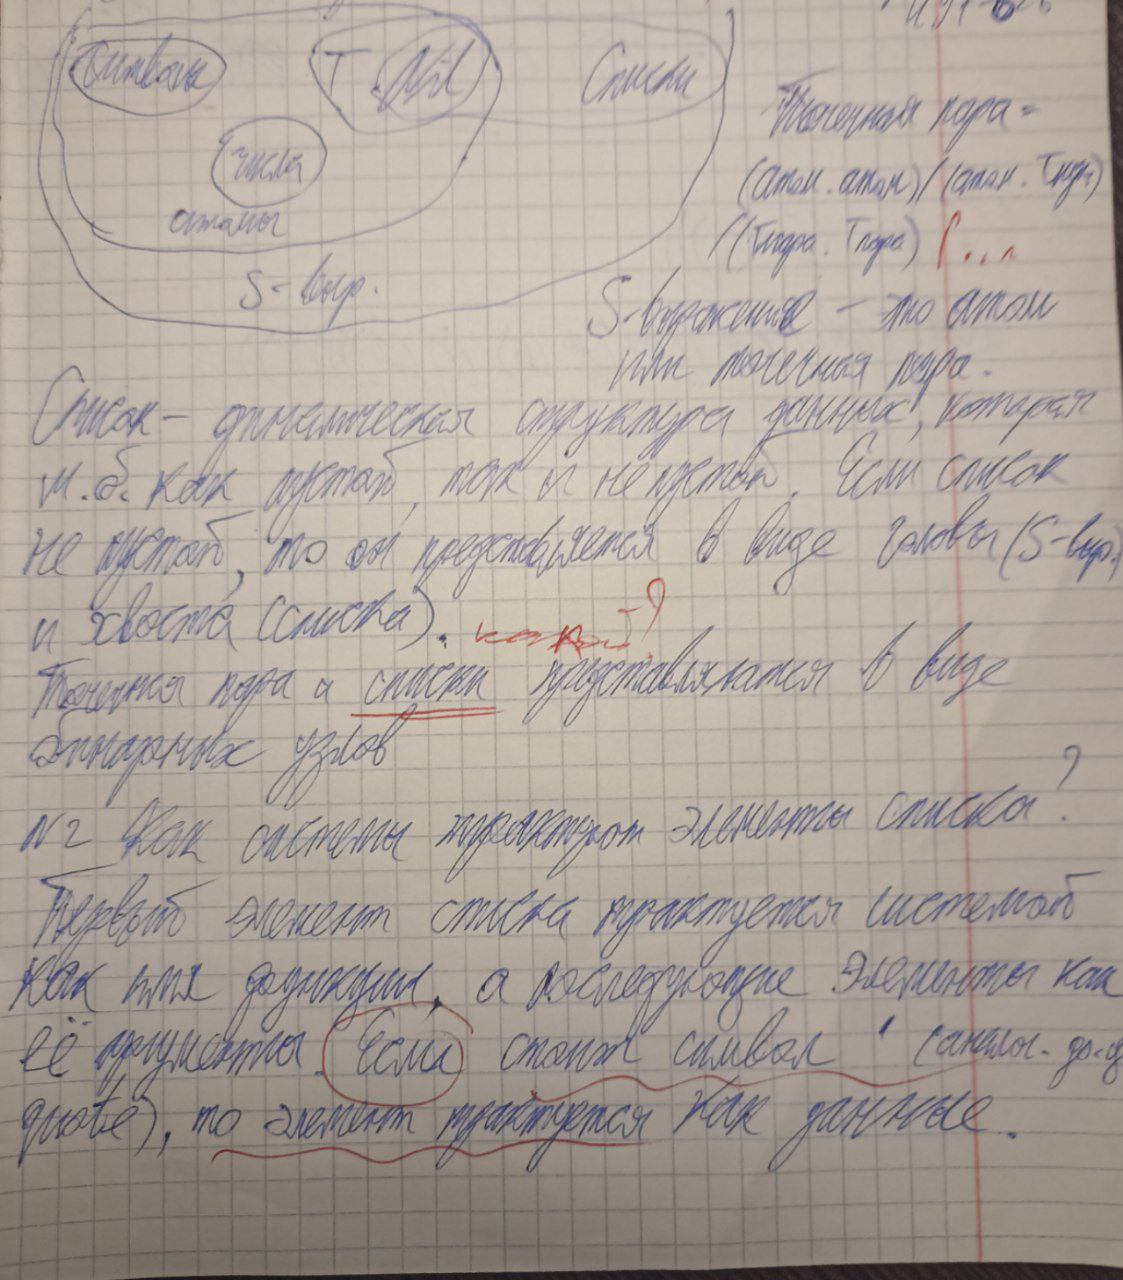 Символы
T
Nil
Списки
числа
атомы
S-выр.
Точечная пара =
(атом. атом)/(атом. Тпара)
/(Тпара. Тпара) / ...
S-выражение - это атом
или точечная пара.
Список - динамическая структура данных, которая
м.б. как пустой, так и не пустой. Если список
не пустой, то он представляется в виде головы (S-выр.)
и хвоста (списка).
Точечная пара и списки представляются в виде
бинарных узлов
№2 Как системы трактуют элементы списка?
Первый элемент списка трактуется системой
как имя функции, а последующие элементы как
её аргументы. Если стоит символ ' (аналог. ф-я
quote), то элемент трактуется как данные.